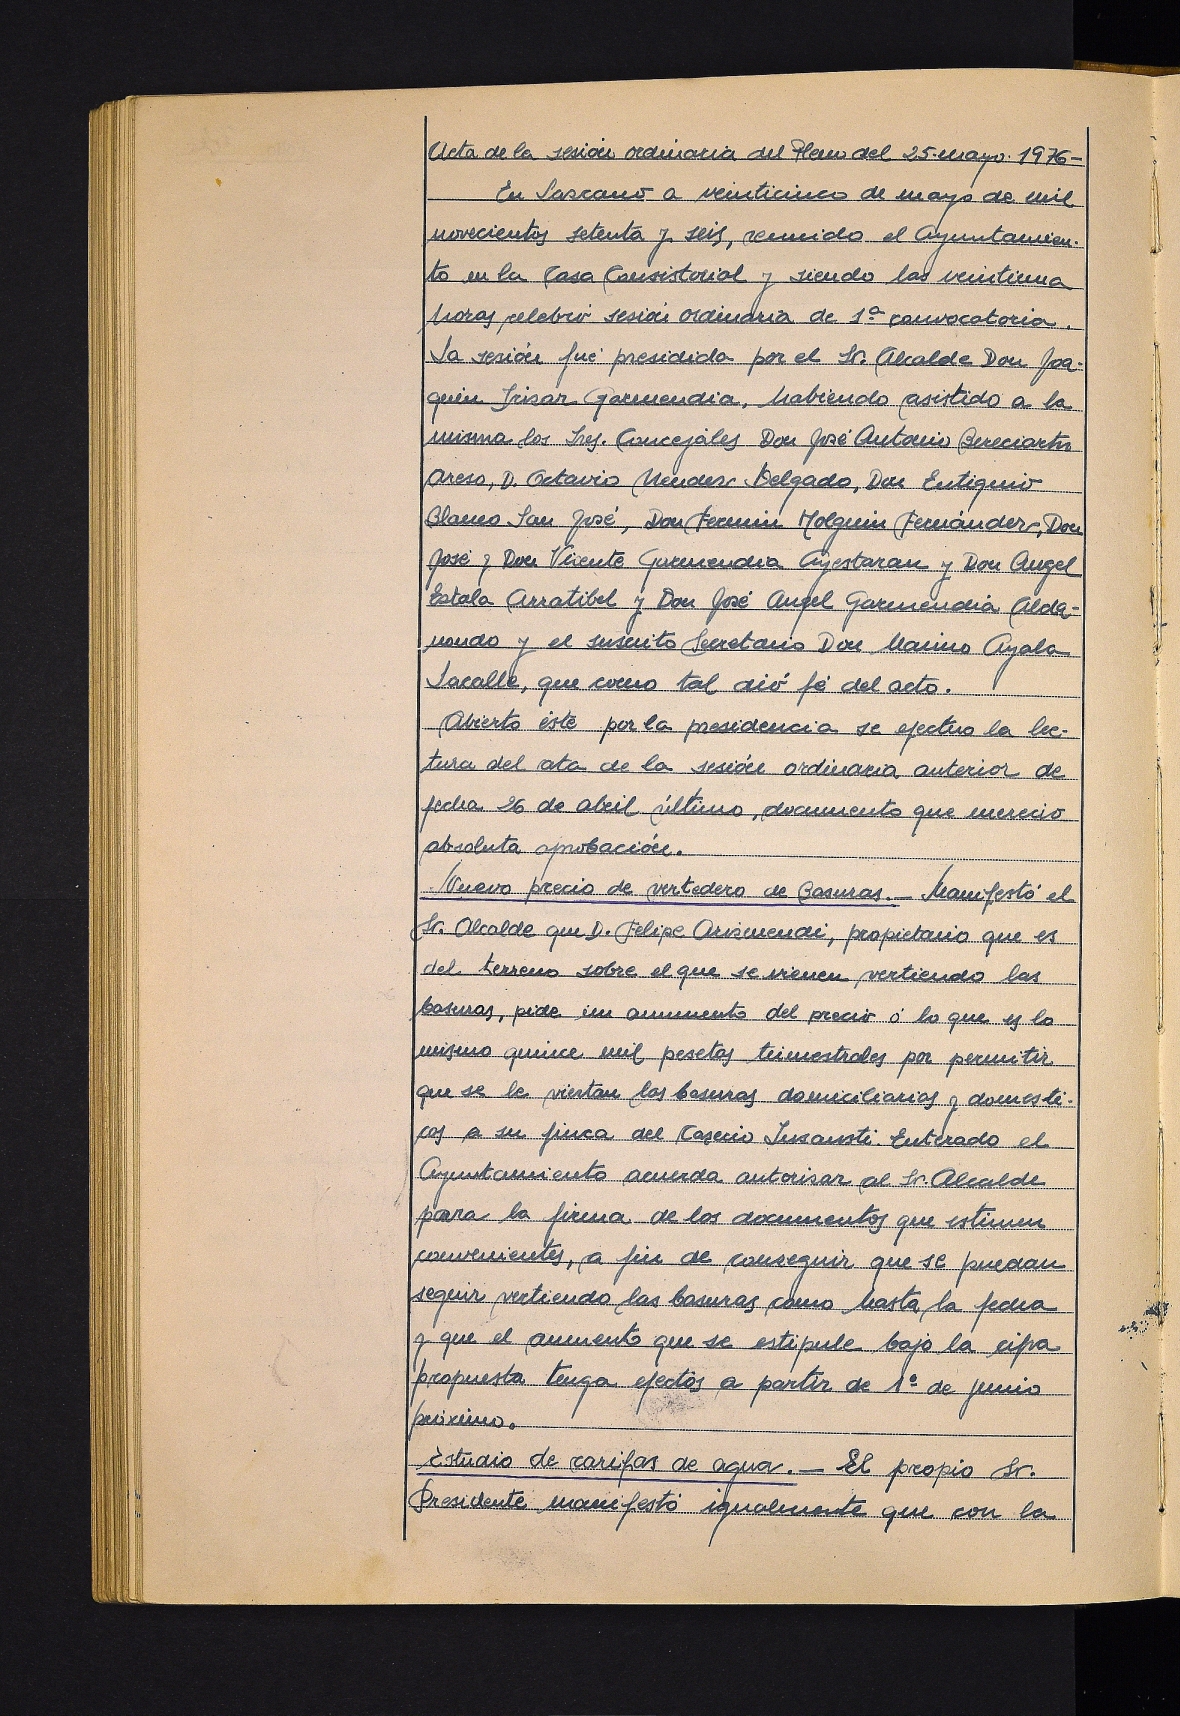 Acta de la sesión ordinaria del Pleno del 25-mayo-1976-
En Lazcano a veinticinco de mayo de mil
novecientos setenta y seis, reunido el Ayuntamien-
to en la Casa Consistorial y siendo las veintiuna
horas celebró sesión ordinaria de 1ª convocatoria.
La sesión fué presidida por el Sr. Alcalde Don Joa-
quin Irizar Garmendia, habiendo asistido a la
misma los Sres. Concejales Don José Antonio Bereciartu
Areso, D. Octavio Mendez Delgado, Don Eutiquio
Blanco San José, Don Fermin Holguin Fernández, Don
José y Don Vicente Garmendia Ayestaran y Don Angel
Estala Arratibel y Don José Angel Garmendia Alda-
nondo y el suscrito Secretario Don Marino Ayala
Lacalle, que como tal dió fé del acto.
Abierto éste por la presidencia se efectuo la lec-
tura del ata de la sesión ordinaria anterior de
fecha 26 de abril último, documento que mereció
absoluta aprobación.
Nuevo precio de vertedero de Basuras.- Manifestó el
Sr. Alcalde que D. Felipe Arizmendi, propietario que es
del terreno sobre el que se vienen vertiendo las
basuras, pide un aumento del precio ó lo que es lo
mismo quince mil pesetas trimestrales por permitir
que se le viertan las basuras domiciliarias y domesti-
cas a su finca del Caserio Inzausti. Enterado el
Ayuntamiento acuerda autorizar al Sr. Alcalde
para la firma de los documentos que estimen
convenientes, a fin de conseguir que se puedan
seguir vertiendo las basuras como hasta la fecha
y que el aumento que se estipule bajo la cifra
propuesta tenga efectos a partir de 1º de junio
próximo.
Estudio de tarifas de agua.- El propio Sr.
Presidente manifestó igualmente que con la